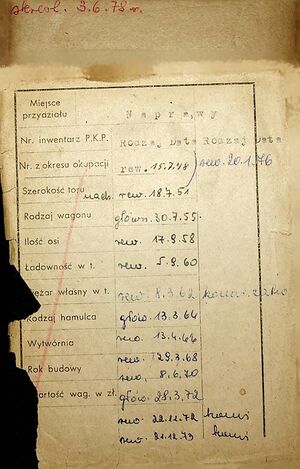 skreśl. 3.6.78 r.
Miejsce przydziału
Naprawy
Nr. inwentarz P.K.P. Rodzaj Data Rodzaj Data
Nr. z okresu okupacji rew. 15.2.48 rew. 20.1.76
Szerokość toru rew. 18.7.51
Rodzaj wagonu główn. 30.7.55.
Ilość osi rew. 17.9.58
Ładowność w t. rew. 5.9.60
ężar własny w t. rew. 8.3.62
Rodzaj hamulca głów. 13.3.64
Wytwórnia rew. 13.4.66
rew. 29.3.68
Rok budowy rew. 8.6.70
artość wag. w zł. głów. 28.3.72
rew. 22.11.72
rew. 21.12.73